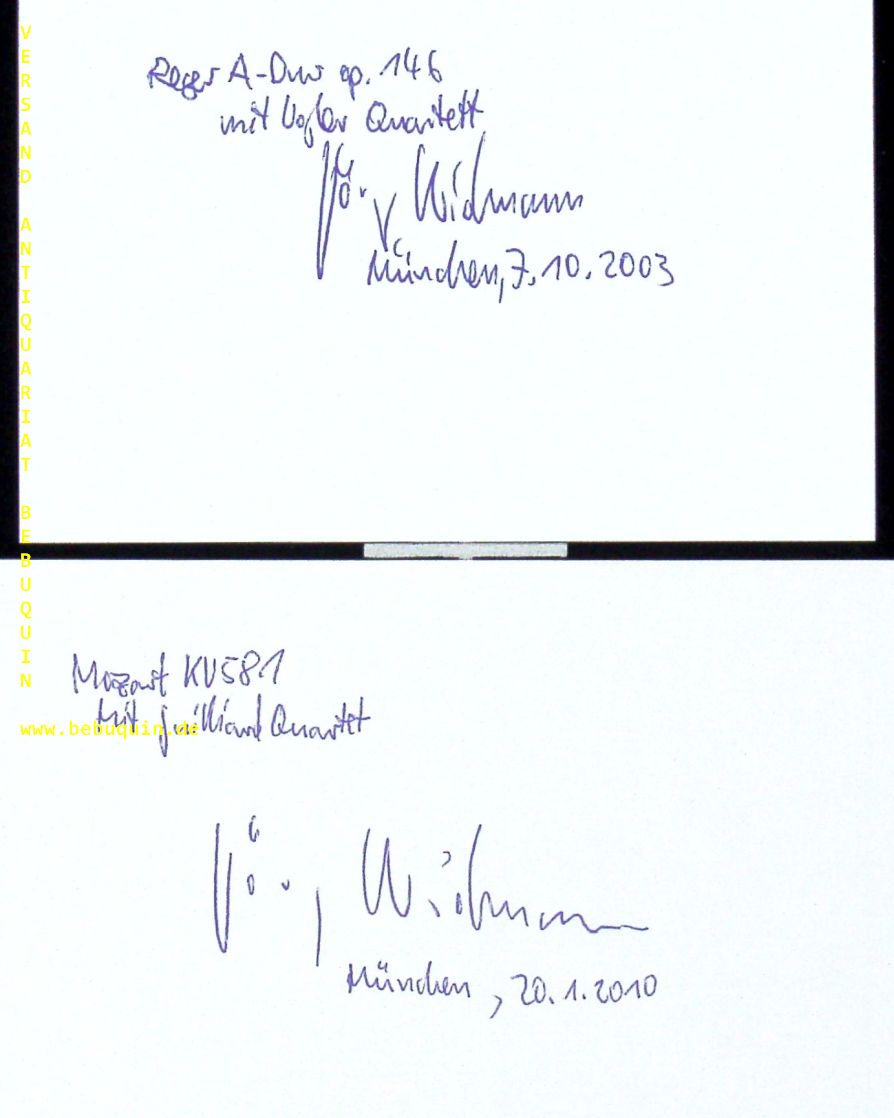 Reger A-Dur op. 146
mit Vogler Quartett
Jörg Widmann
München, 7.10.2003
Mozart KV 581
Mit Juilliard Quartet
Jörg Widmann
München, 20.1.2010
VERSAND ANTIQUARIAT BEBUQUIN
www.bebuquin.de